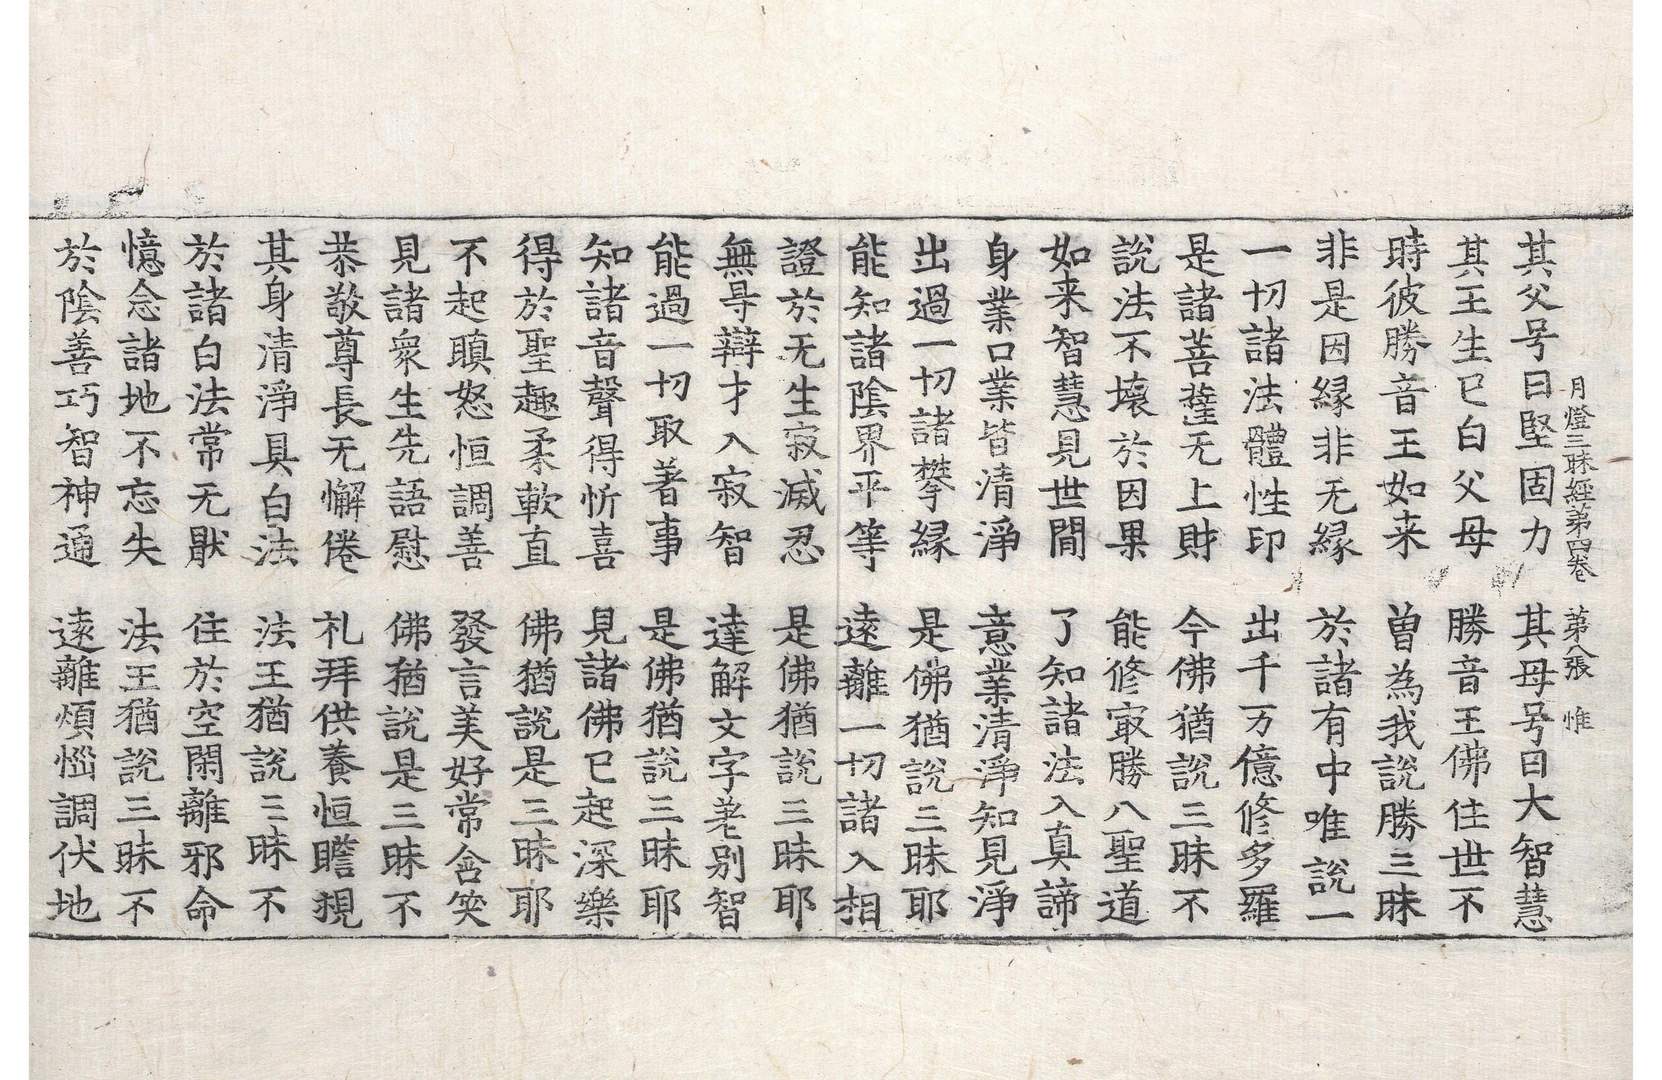 月燈三昧經苐四卷 苐八張 惟
其父号曰堅固力 其母号曰大智慧
其王生已白父母 勝音王佛住世不
時彼勝音王如来 曽為我說勝三昧
非是因縁非无縁 於諸有中唯說一
一切諸法體性印 出千万億修多羅
是諸菩薩无上財 今佛猶說三昧不
說法不壞於因果 能修㝡勝八聖道
如来智慧見世間 了知諸法入真諦
身業口業皆清淨 意業清淨知見淨
出過一切諸攀縁 是佛猶說三昧耶
能知諸陰界平等 遠離一切諸入相
證於无生寂滅忍 是佛猶說三昧耶
無㝵辯才入寂智 達解文字差別智
能過一切取著事 是佛猶說三昧耶
知諸音聲得忻喜 見諸佛已起深樂
得於聖趣柔軟直 佛猶說是三昧耶
不起瞋怒恒調善 發言美好常含笑
見諸衆生先語慰 佛猶說是三昧不
恭敬尊長无懈倦 礼拜供養恒瞻覩
其身清淨具白法 法王猶說三昧不
於諸白法常无猒 住於空閑離邪命
憶念諸地不忘失 法王猶說三昧不
於陰善巧智神通 遠離煩惱調伏地